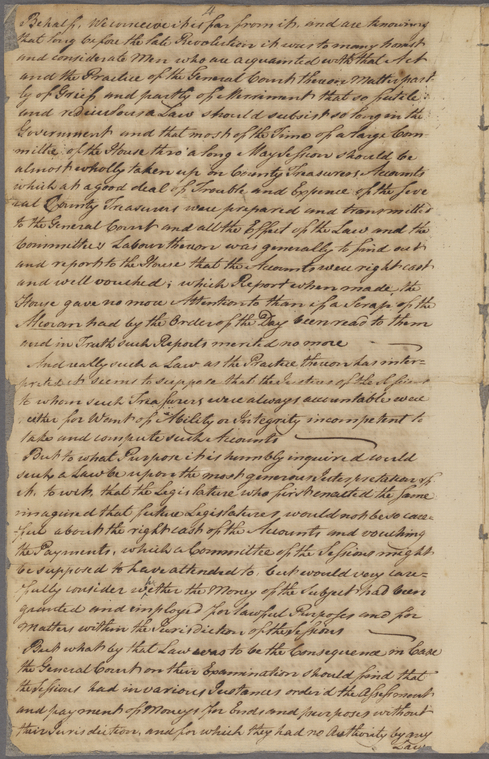 4
Behalf. We conceive it is far from it, and are knowing
that long before the late Revolution it was to many honest
and considerate Men who are acquainted with that Act
and the Practice of the General Court thereon Matter part
ly of Grief and partly of Merriment that so futile
and rediculous a Law should subsist so long in the
Government and that most of the Time of a large Com-
mittee of the House thro' a long May Session should be
almost wholly taken up on County Treasurers Accounts
which at a good deal of Trouble and Expence of the seve
ral County Treasurers were prepared and transmitted
to the General Court and all the Effect of the Law and the
Committee's Labour thereon was generally to find out
and report to the House that the Accounts were right cast
and well vouched; which Report when made the
House gave no more Attention to than if a Scrap of the
Alcoran had by the Order of the Day been read to them
and in Truth such Reports merited no more
And really such a Law as the Practice thereon has inter-
preted it seems to suppose that the Justices of the Sessions
to whom such Treasurers were always accountable were
either for Want of Ability or Integrity incompetent to
take and compute such Accounts
But to what Purpose it is humbly inquired could
such a Law be upon the most generous Interpretation of
it. to wit, that the Legislature who first enacted the same
imagined that future Legislatures would not be so care-
ful about the right cast of the Accounts and vouching
the Payments, which a Committee of the Sessions might
be supposed to have attended to, but would very care-
fully consider whether the Money of the Subject had been
granted and employed for lawful Purposes and for
Matters within the Jurisdiction of the Sessions
But what by that Law was to be the Consequence in Case
the General Court on their Examination should find that
the Sessions had in various Instances order'd the Assessment
and payment of Moneys for Ends and purposes without
their Jurisdiction, and for which they had no Authority by any
Law